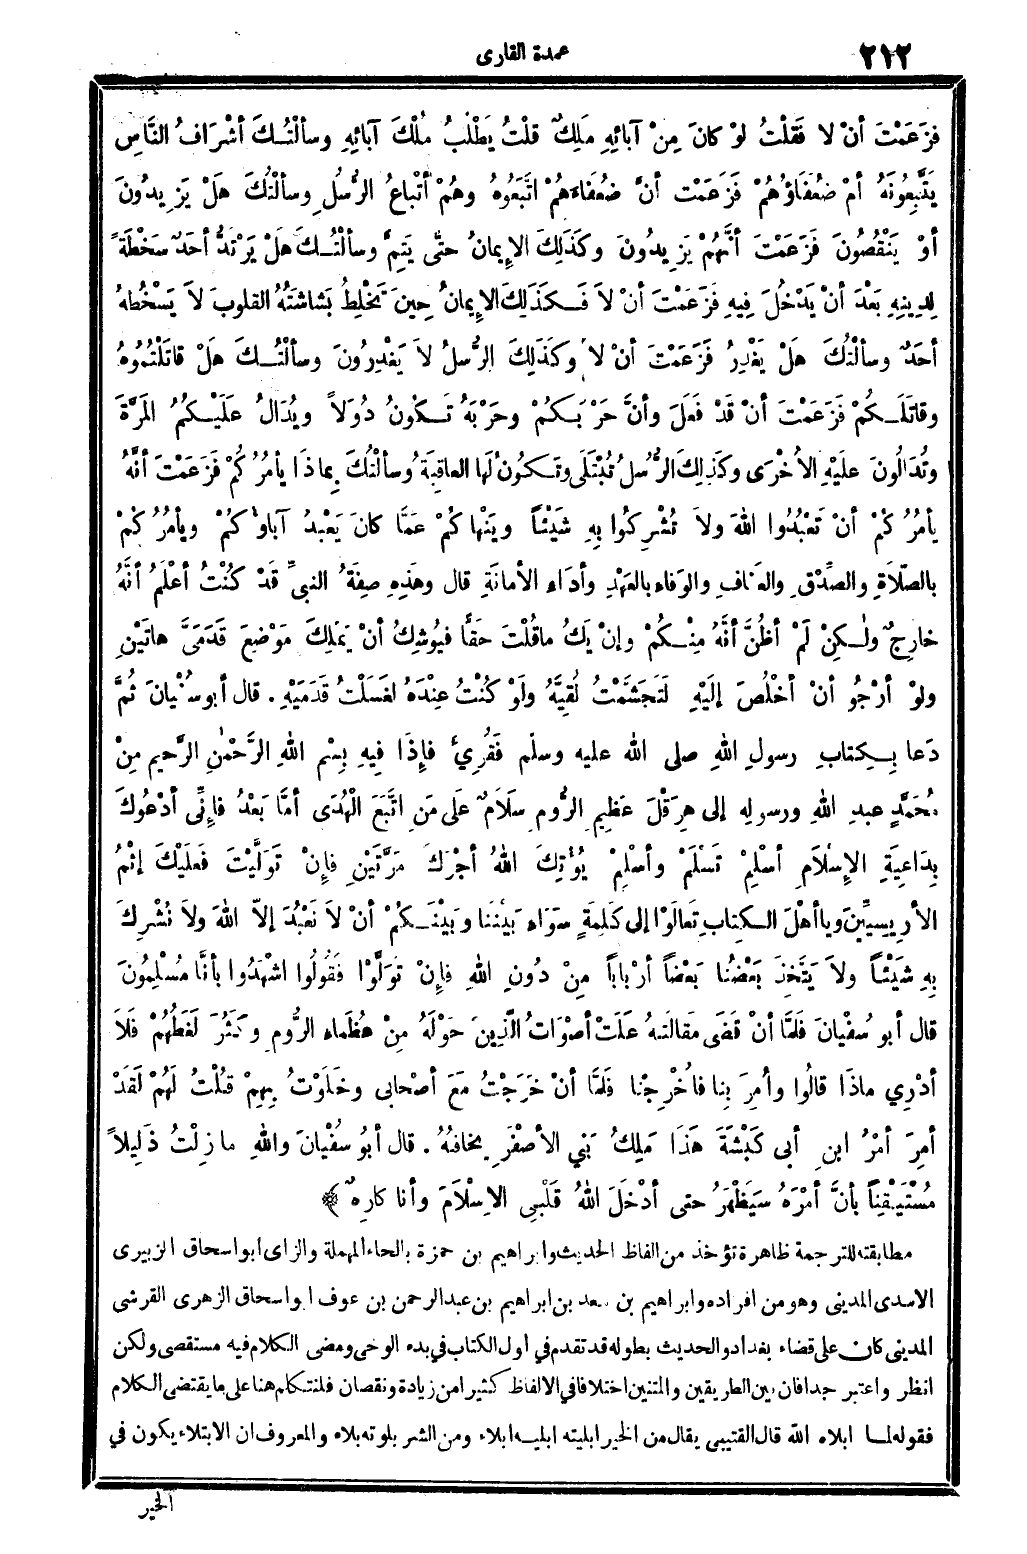 ٢١٢
عمدة القارى
فَزَعَمْتَ أنْ لا فَقلْتُ لوْ كانَ مِنْ آبائِهِ مَلِكٌ قلْتُ يَطْلُبُ مُلْكَ آبائِهِ وسألْتُكَ أشْرَافُ النَّاسِ
يَتَّبِعُونَهُ أمْ ضُعَفَاؤُهُمْ فَزَعَمْتَ أنَّ ضُعَفاءَهُمْ اتَّبَعُوهُ وهُمْ أتْباعُ الرُّسُلِ وسألْتُكَ هَلْ يَزِيدُونَ
أوْ يَنْقُصُونَ فَزَعَمْتَ أنَّهُمْ يَزِيدُونَ وكَذَلِكَ الإيمانُ حتَّى يَتِمَّ وسألْتُكَ هَلْ يَرْتَدُّ أحَدٌ سَخْطَةً
لِدِينِهِ بَعْدَ أنْ يَدْخُلَ فِيهِ فَزَعَمْتَ أنْ لاَ فَكَذَلِكَ الإيمانُ حِينَ تَخْلِطُ بَشاشَتُهُ القلوبَ لاَ يَسْخُطهُ
أحَدٌ وسألْتُكَ هَلْ يَغْدِرُ فَزَعَمْتَ أنْ لاَ وكَذَلِكَ الرُّسلُ لاَ يَغْدِرُونَ وسألْتُكَ هَلْ قاتَلْتُمُوهُ
وقاتَلَكُمْ فَزَعَمْتَ أنْ قَدْ فَعَلَ وأنَّ حَرْبَكُمْ وحَرْبَهُ تَكُونُ دُوَلاً ويُدَالُ عَلَيْكُمُ المَرَّةَ
وتُدَالُونَ علَيْهِ الأخْرَى وكَذَلِكَ الرُّسُلُ تُبْتَلَى وتَكُونُ لَها العاقِبَةُ وسألْتُكَ بِماذَا يأمُرُكُمْ فَزَعَمْتَ أنَّهُ
يأمُرُكُمْ أنْ تَعْبُدُوا اللهَ ولاَ تُشْرِكُوا بِهِ شَيْئاً ويَنْهاكمْ عَمَّا كانَ يَعْبدُ آباؤكُمْ ويأمُرُكمْ
بالصَّلاَةِ والصِّدْقِ والعَفافِ والوَفاءِ بالعَهْدِ وأدَاءِ الأمانَةِ قال وهَذِهِ صِفَةُ النبيِّ قَدْ كُنْتُ أعْلَمُ أنَّهُ
خارِجٌ ولَكِنْ لَمْ أظُنَّ أنَّهُ مِنْكُمْ وإنْ يَكُ ماقُلْتَ حَقًّا فيُوشِكُ أنْ يَمْلِكَ مَوْضِعَ قَدَمَيَّ هاتَيْنِ
ولوْ أرْجُو أنْ أخْلُصَ إلَيْهِ لَتَجَشَّمْتُ لُقِيَّهُ ولَوْ كُنْتُ عِنْدَهُ لغَسَلْتُ قَدَمَيْهِ . قال أبوسُفْيانَ ثُمَّ
دَعا بِكِتابِ رسولِ اللهِ صلى الله عليه وسلم فَقُرِئَ فإذَا فِيهِ بِسْمِ اللهِ الرَّحْمٰنِ الرَّحيمِ مِنْ
مُحَمَّدٍ عبدِ اللهِ ورسولِهِ إلى هِرَقْلَ عَظِيمِ الرُّومِ سَلاَمٌ عَلَى مَنِ اتَّبَعَ الْهُدَى أمَّا بَعْدُ فإنِّي أدْعُوكَ
بِدَاعِيَةِ الإسْلاَمِ أسْلِمْ تَسْلَمْ وأسْلِمْ يُؤْتِكَ اللهُ أجْرَكَ مَرَّتَيْنِ فإنْ تَوَلَّيْتَ فَعلَيْكَ إثْمُ
الأرِيسِيِّينَ ويا أهْلَ الكِتابِ تَعالَوْا إلى كَلِمَةٍ سَوَاءٍ بَيْنَنا وبَيْنَكُمْ أنْ لاَ نَعْبُدَ إلاَّ اللهَ ولاَ نُشْرِكَ
بِهِ شَيْئاً ولاَ يَتَّخِذَ بَعْضُنا بَعْضاً أرْباباً مِنْ دُونِ اللهِ فإنْ تَوَلَّوْا فَقُولُوا اشْهَدُوا بأنَّا مُسْلِمُونَ
قال أبو سُفْيانَ فَلَمَّا أنْ قَضَى مَقالَتَهُ عَلَتْ أصْوَاتُ الَّذِينَ حَوْلَهُ مِنْ عُظَماءِ الرُّومِ وكَثُرَ لَغَطُهُمْ فَلاَ
أدْرِي ماذَا قالُوا وأُمِرَ بِنا فأُخْرِجْنا فَلَمَّا أنْ خَرَجْتُ مَعَ أصْحابى وخَلَوْتُ بِهِمْ قُلْتُ لَهُمْ لَقَدْ
أمِرَ أمْرُ ابنِ أبى كَبْشَةَ هَذَا مَلِكُ بَنِي الأصْفَرِ يخافُهُ . قال أبُو سُفْيانَ واللهِ مازِلْتُ ذَلِيلاً
مُسْتَيْقِناً بأنَّ أمْرَهُ سَيَظْهَرُ حتى أدْخَلَ اللهُ قَلْبِى الإسْلاَمَ وأنا كارِهٌ ﴾
مطابقته للترجمة ظاهرة تؤخذ من الفاظ الحديث وابراهيم بن حمزة بالحاء المهملة والزاى ابو اسحاق الزبيرى
الاسدى المدينى وهو من افراده وابراهيم بن سعد بن ابراهيم بن عبد الرحمن بن عوف ابو اسحاق الزهرى القرشى
المدينى كان على قضاء بغداد والحديث بطوله قد تقدم في أول الكتاب في بدء الوحى ومضى الكلام فيه مستقصى ولكن
انظر واعتبر جدا فان بين الطريقين والمتنين اختلافا في الالفاظ كثيرا من زيادة ونقصان فلنتكلم هنا على ما يقتضى الكلام
فقوله لما ابلاه الله قال القتيبى يقال من الخير ابليته ابليه ابلاء ومن الشر بلوته بلاء والمعروف ان الابتلاء يكون في
الخير